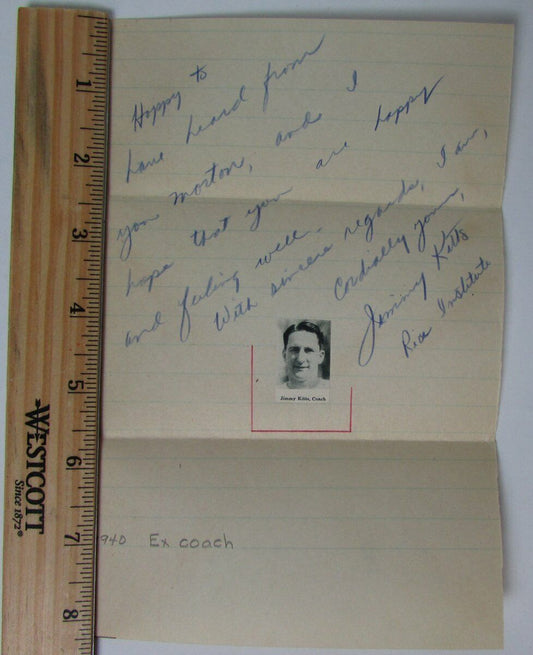 Happy to
have heard from
you Morton, and I
hope that you are happy
and feeling well.
With sincere regards, I am,
Cordially yours,
Jimmy Kitts
Rice Institute
Jimmy Kitts, Coach
940 Ex coach
1
2
3
4
5
6
7
8
WESTCOTT
Since 1872®